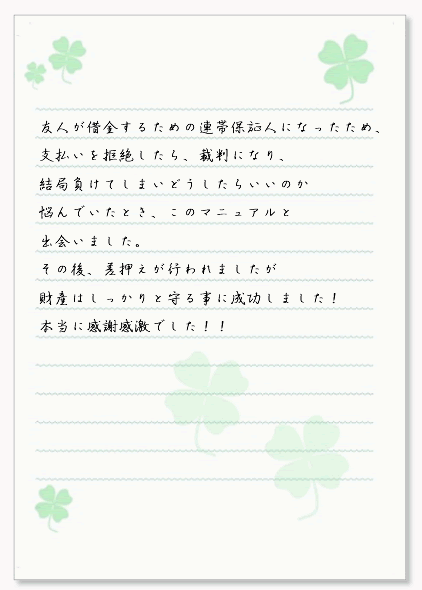 友人が借金するための連帯保証人になったため、
支払いを拒絶したら、裁判になり、
結局負けてしまいどうしたらいいのか
悩んでいたとき、このマニュアルと
出会いました。
その後、差押えが行われましたが
財産はしっかりと守る事に成功しました！
本当に感謝感激でした！！